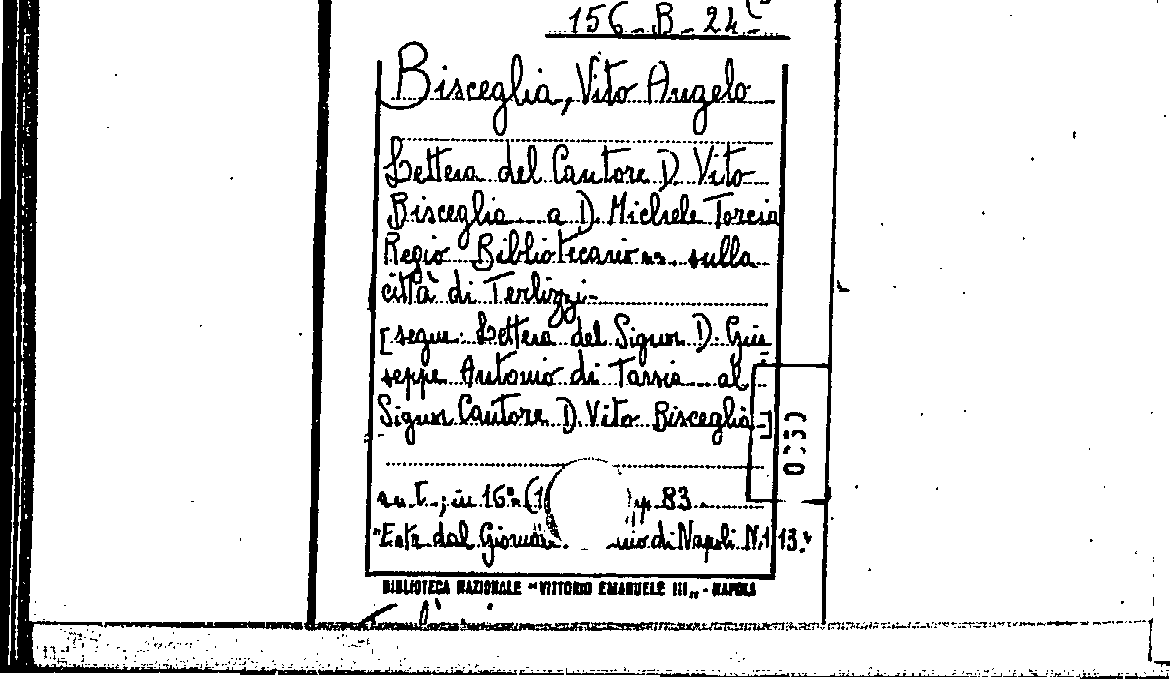 156_B_24
Bisceglia, Vito Angelo
Lettera del Cantore D. Vito
Bisceglia a D. Michele Torcia
Regio Bibliotecario sulla
città di Terlizzi
[segue: Lettera del Signor D. Giu
seppe Antonio di Tassia al
Signor Cantore D. Vito Bisceglia]
s.n.t.; in 16° (1 pp. 83
"Estr. dal Giorna di Napoli N. 113."
BIBLIOTECA NAZIONALE "VITTORIO EMANUELE III" - NAPOLI